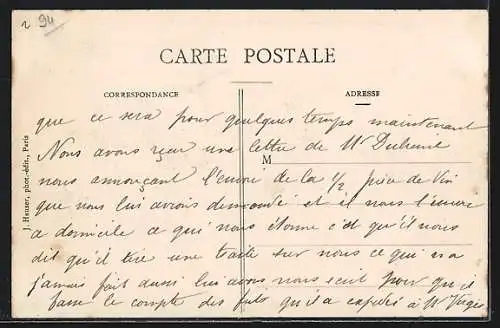 94
CARTE POSTALE
CORRESPONDANCE
ADRESSE
que ce sera pour quelques temps maintenant
Nous avons reçu une lettre de Mr
M
nous annonçant l'envoi de la 1/2 pièce de Vin
que nous lui avions demandé et il nous l'envoie
a domicile ce qui nous étonne c'est qu'il nous
dit qu'il tire une traite sur nous ce qui n'a
jamais fait aussi lui avons nous écrit pour qu'il
fasse le compte des futs qu'il a à Mr
J. Hauser, phot.-édit., Paris